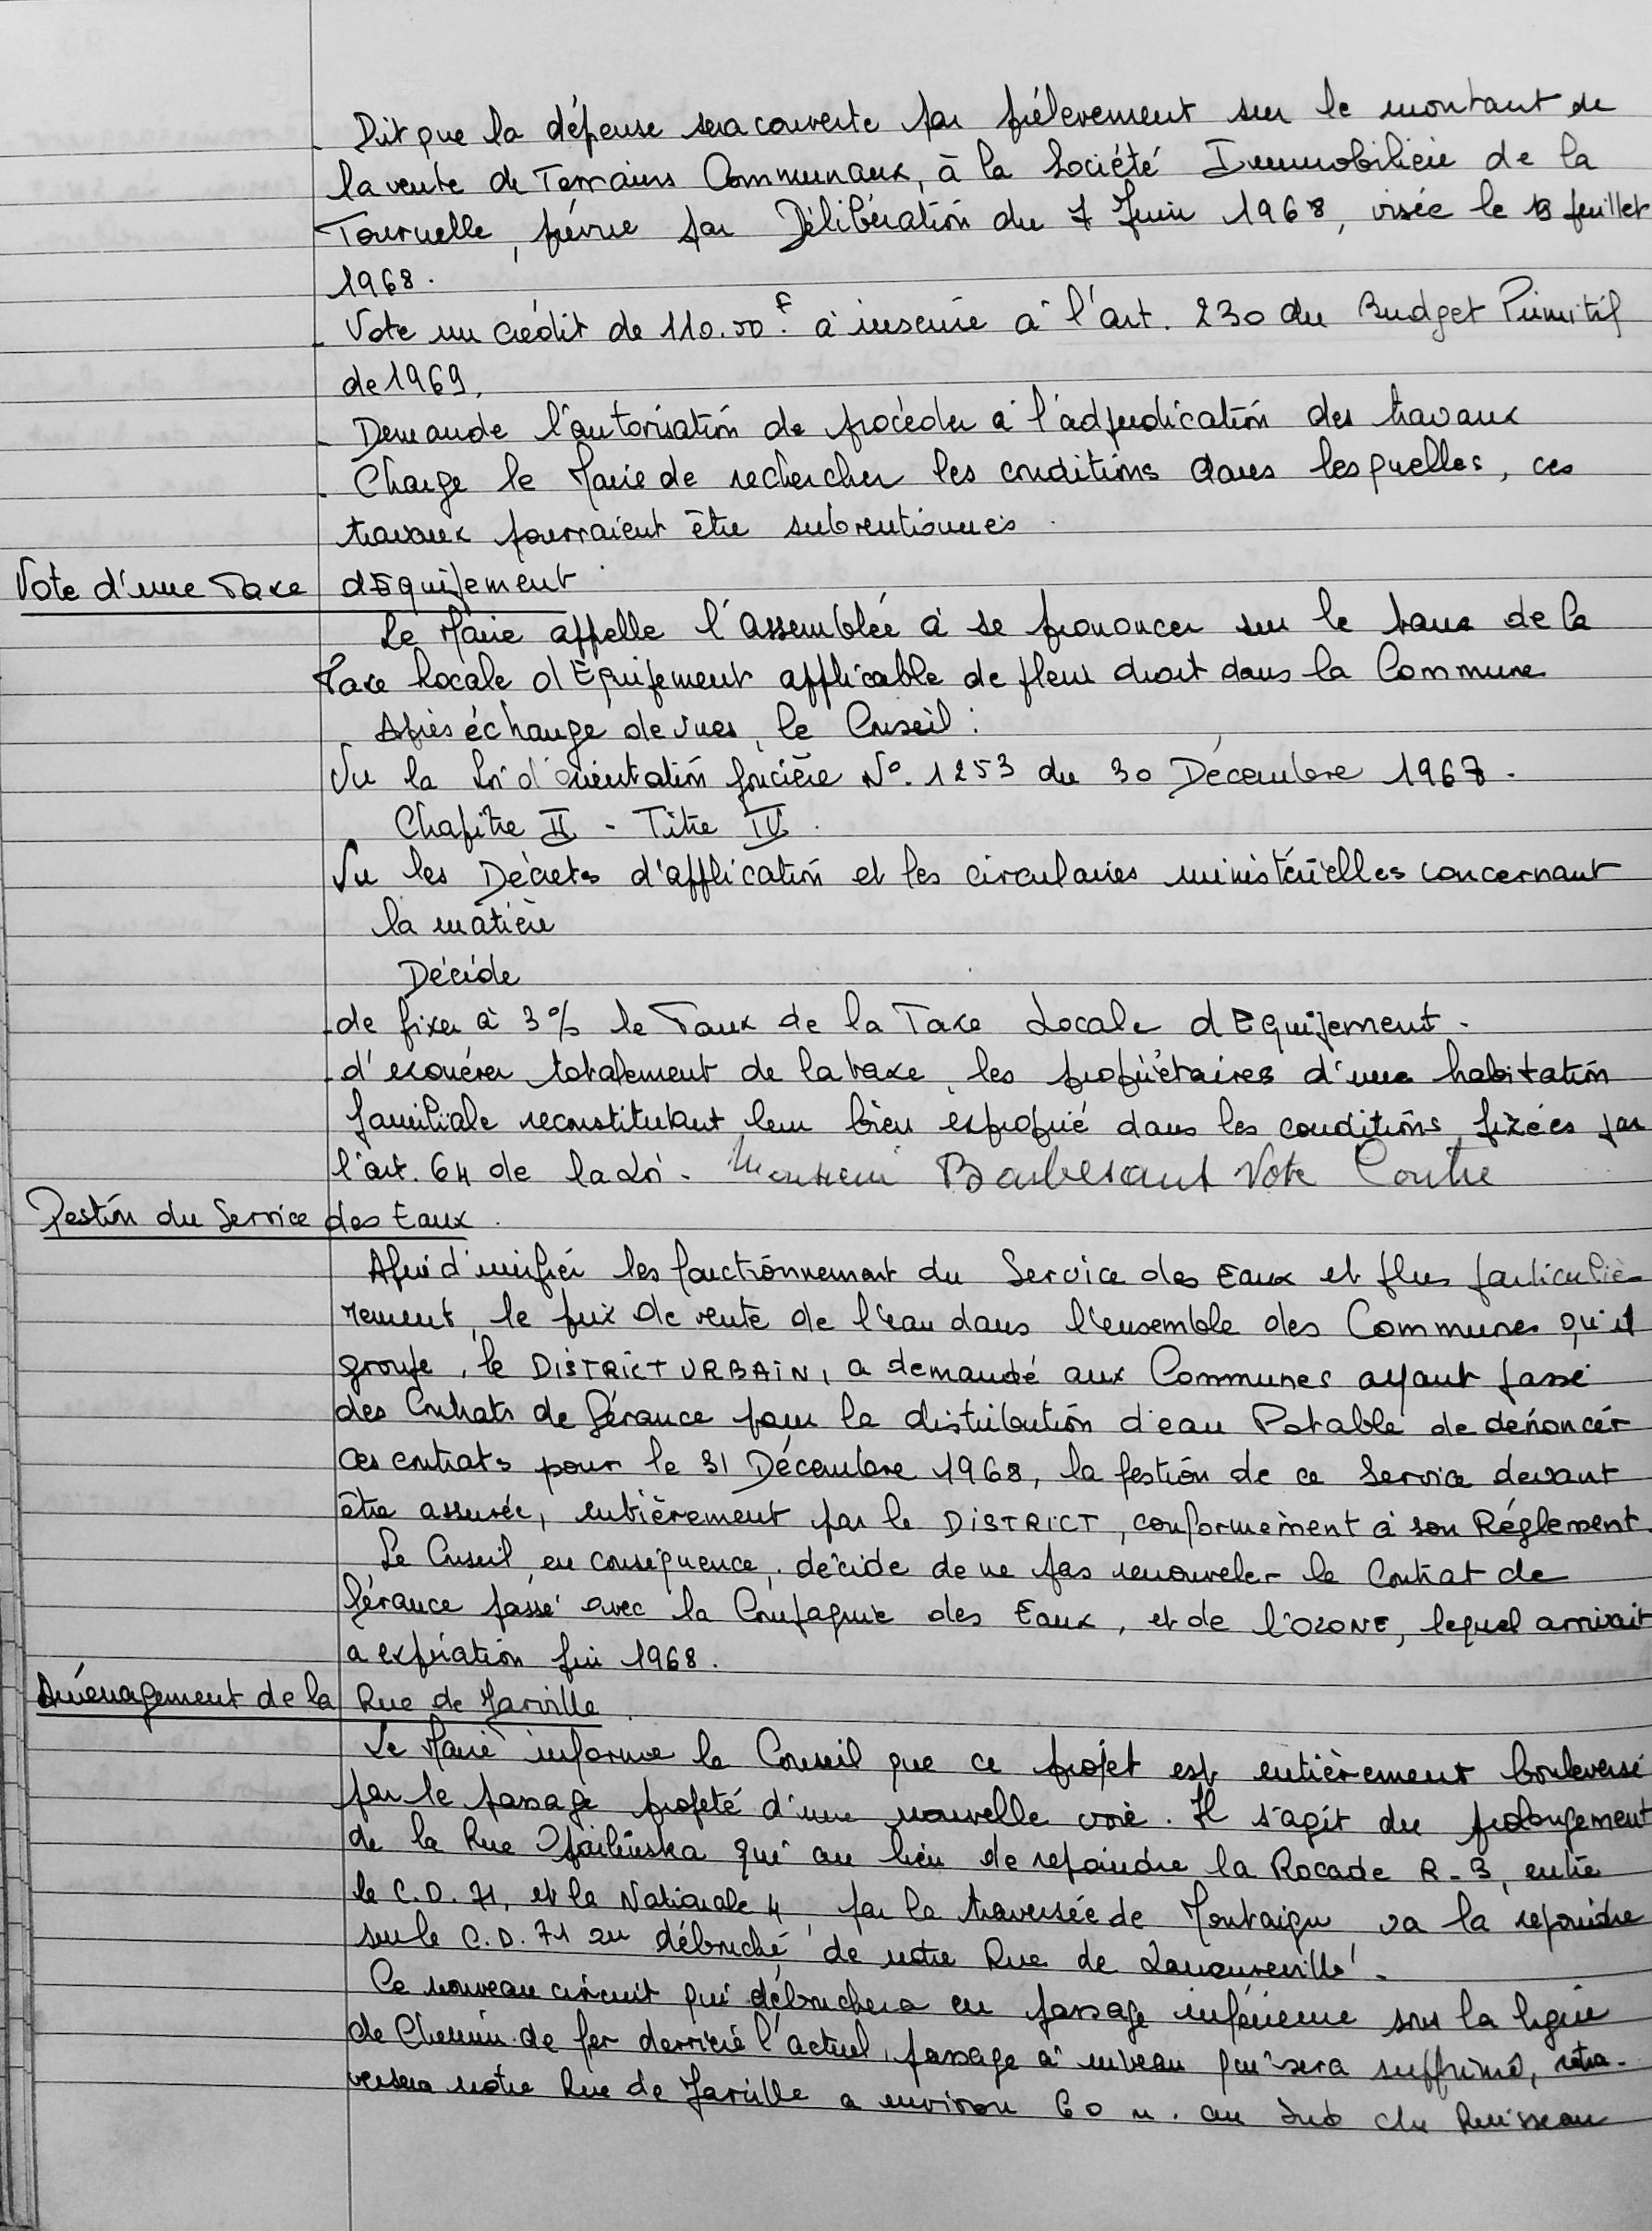 - Dit que la dépense sera couverte par prélevement sur le montant de
la vente de Terrains Communaux, à la Société Immobilière de la
Tournelle, prévue par Délibération du 7 Juin 1968, visée le juillet
1968.
- Vote un crédit de 110.50 F. à inscrire à l'art. 230 du Budget Primitif
de 1969.
- Demande l'autorisation de procéder à l'adjudication des travaux
- Charge le Maire de rechercher les conditions dans lesquelles, ces
travaux pourraient être subventionnés.
Vote d'une Taxe d'Equipement.
Le Maire appelle l'assemblée à se prononcer sur le taux de la
Taxe Locale d'Equipement applicable de plein droit dans la Commune
Après échange de vues, le Conseil :
Vu la Loi d'orientation foncière N°. 1253 du 30 Décembre 1967.
Chapitre II - Titre IV.
Vu les Décrets d'application et les circulaires ministérielles concernant
la matière
Décide
- de fixer à 3% le Taux de la Taxe Locale d'Equipement.
- d'exonérer totalement de la taxe, les propriétaires d'une habitation
familiale reconstituant leur bien exproprié dans les conditions fixées par
l'art. 64 de la Loi. Monsieur Barbesant Vote Contre
Gestion du Service des Eaux.
Afin d'unifier les fonctionnement du Service des Eaux et plus particuliè-
rement, le prix de vente de l'eau dans l'ensemble des Communes qu'il
groupe, le DISTRICT URBAIN, a demandé aux Communes ayant passé
des Contrats de Gérance pour la distribution d'eau Potable de dénoncer
ces contrats pour le 31 Décembre 1968, la gestion de ce Service devant
être assurée, entièrement par le DISTRICT, conformément à son Réglement.
Le Conseil, en conséquence, décide de ne pas renouveler le Contrat de
Gérance passé avec la Compagnie des Eaux, et de l'OZONE, lequel arrivait
a expiration fin 1968.
Aménagement de la Rue de Jarville.
Le Maire informe le Conseil que ce projet est entièrement bouleversé
par le passage projeté d'une nouvelle voie. Il s'agit du prolongement
de la Rue Opalinska qui au lieu de rejoindre la Rocade R-3, entre
le C.D. 71, et la Nationale 4, par la traversée de Montaigu va la rejoindre
sur le C.D. 71 au débouché de notre Rue de Laneuveville.
Ce nouveau circuit qui débouchera en passage inférieure sous la ligne
de Chemin de fer derrière l'actuel passage à niveau qui sera supprimé,
versera notre Rue de Jarville a environ 60 m. au Sud du Ruisseau